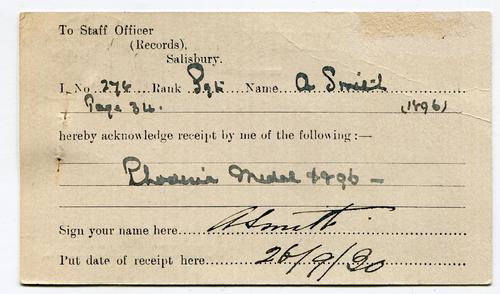 To Staff Officer
(Records),
Salisbury.
I, No. 276 Rank Sgt Name A Smith
Page 34. (1896)
hereby acknowledge receipt by me of the following :—
Rhodesia Medal 1896 —
Sign your name here ASmith.
Put date of receipt here 26/9/30